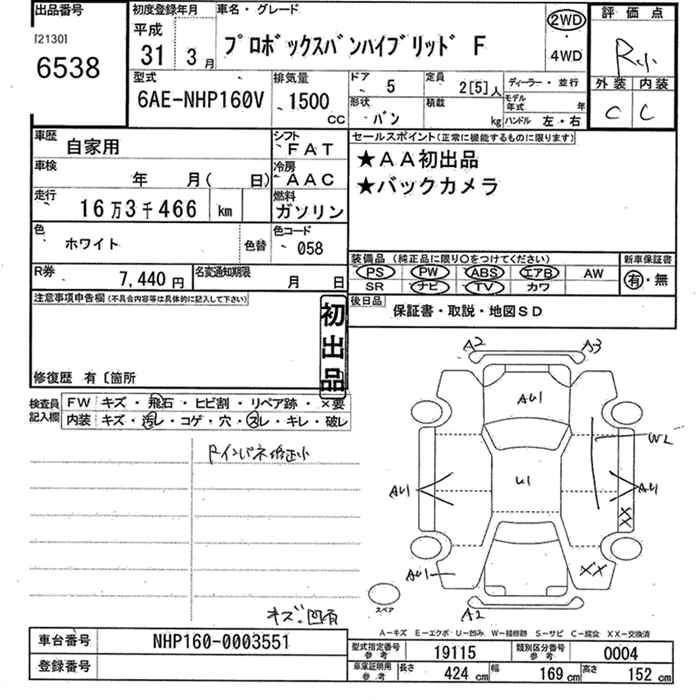 出品番号
[2130]
6538
初度登録年月
平成
31 3月
車名・グレード
プロボックスバンハイブリッド F
2WD
・
4WD
評価点
R小
外装 内装
C C
型式
6AE-NHP160V
排気量
1500 CC
ドア 5
形状 バン
定員 2[5]人
積載 kg
ディーラー・並行
モデル年式 年
ハンドル 左・右
車歴 自家用
シフト FAT
車検 年 月( 日)
冷房 AAC
走行 16万3千466 km
燃料 ガソリン
色 ホワイト
色替
色コード 058
R券 7,440円
名変通知期限 月 日
セールスポイント(正常に機能するものに限ります)
★AA初出品
★バックカメラ
装備品(純正品に限り○をつけてください)
PS PW ABS エアB AW
SR ナビ TV カワ
新車保証書
有・無
後日品
保証書・取説・地図SD
注意事項申告欄(不具合内容等は具体的に記入して下さい)
初出品
修復歴 有〔箇所
検査員記入欄
FW キズ・飛石・ヒビ割・リペア跡・×要
内装 キズ・汚レ・コゲ・穴・スレ・キレ・破レ
Rインパネ修正小
キズ凹有
A2 A3
AU1
W2
U1
AU1 AU1
XX
AU1 XX
スペア
A2
A-キズ E-エクボ・U-凹み W-補修跡 S-サビ C-腐食 XX-交換済
車台番号 NHP160-0003551
登録番号
型式指定番号 参考 19115
類別区分番号 参考 0004
車庫証明用 参考 長さ 424 cm 幅 169 cm 高さ 152 cm